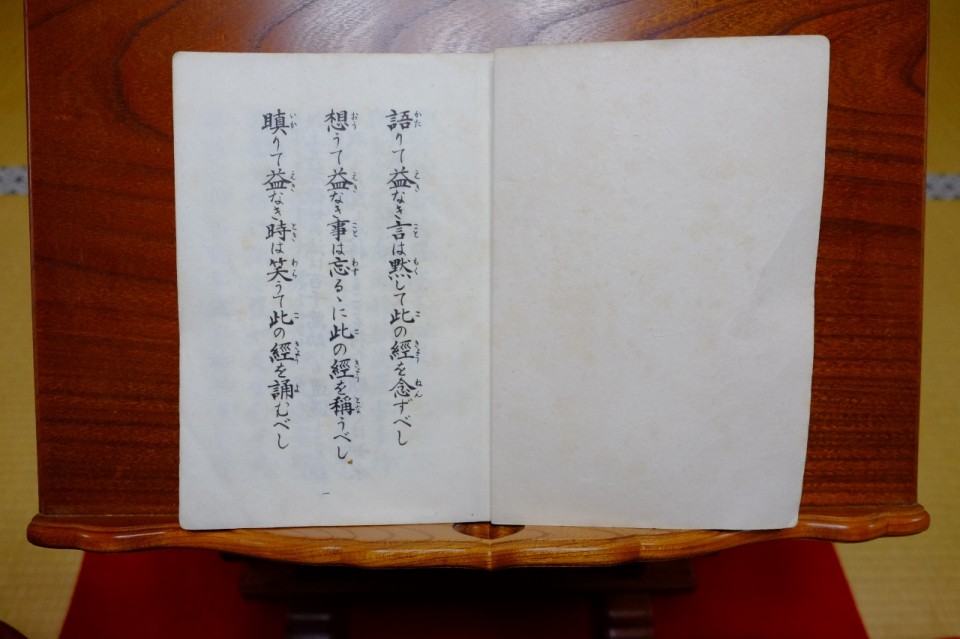 語りて益なき言は黙して此の經を念ずべし
想うて益なき事は忘るゝに此の經を稱うべし
瞋りて益なき時は笑うて此の經を誦むべし
一